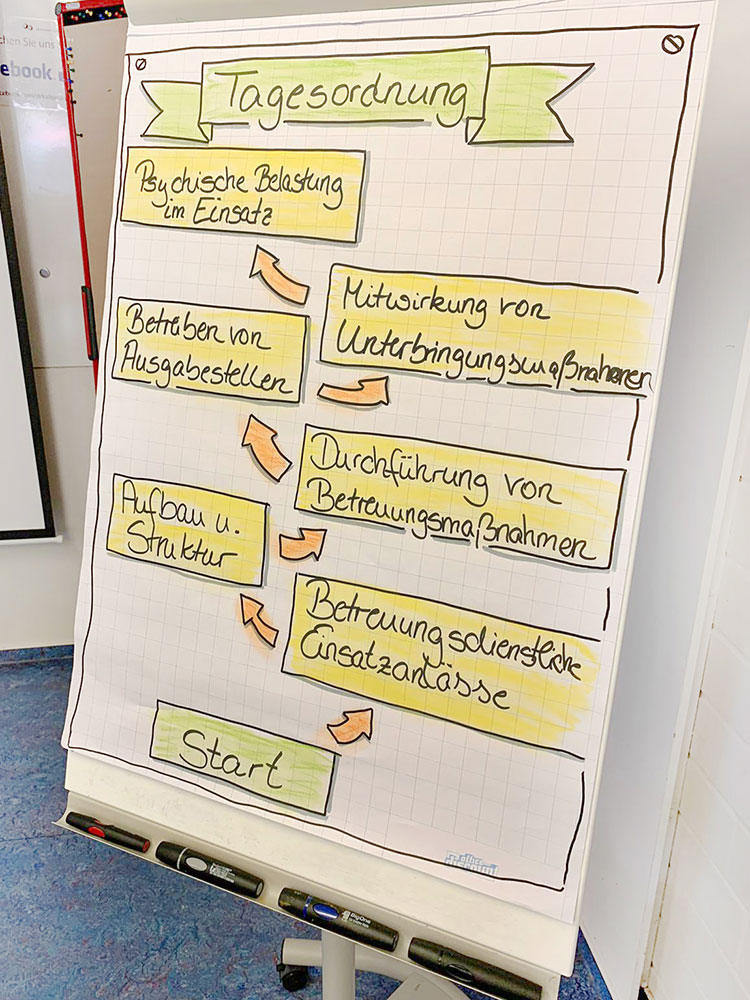 Tagesordnung
Psychische Belastung
im Einsatz
Mitwirkung von
Unterbringungsmaßnahmen
Betreiben von
Ausgabestellen
Durchführung von
Betreuungsmaßnahmen
Aufbau u.
Struktur
Betreuungsdienstliche
Einsatzanlässe
Start
ebook
BigOne